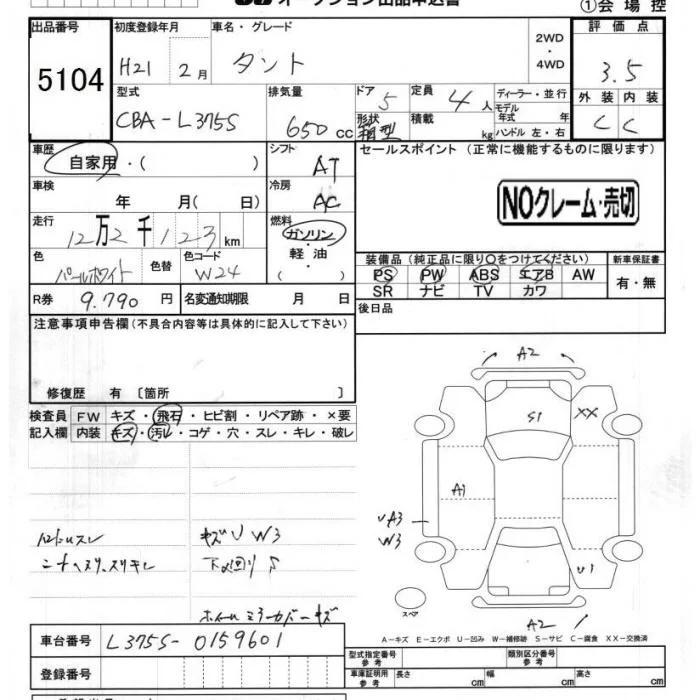 オークション出品申込書
①会場控
出品番号 初度登録年月 車名・グレード 評価点
5104 H21 2月 タント 2WD・4WD 3.5
外装 内装
C C
型式 排気量 ドア 定員 ディーラー・並行
CBA-L375S 650cc 5 4人 モデル年式 年
形状 箱型 積載 kg ハンドル 左・右
車歴 シフト セールスポイント (正常に機能するものに限ります)
自家用・( ) AT
車検 冷房
年 月( 日) AC
NOクレーム・売切
走行 燃料
12万2千123km ガソリン・軽油・( )
色 色替 色コード
パールホワイト W24
装備品(純正品に限り○をつけてください) 新車保証書
PS PW ABS エアB AW 有・無
SR ナビ TV カワ
R券 9.790円 名変通知期限 月 日
後日品
注意事項申告欄(不具合内容等は具体的に記入して下さい)
修復歴 有 〔箇所 〕
検査員記入欄 FW キズ・飛石・ヒビ割・リペア跡・×要
内装 キズ・汚レ・コゲ・穴・スレ・キレ・破レ
キズU W3
下廻りS
ホイールミラーカバーキズ
A2
S1
XX
A1
UA3
W3
U1
A2
スペア
A-キズ E-エクボ U-凹み W-補修跡 S-サビ C-腐食 XX-交換済
車台番号 L375S-0159601
登録番号
型式指定番号 参考 類別区分番号 参考
車庫証明用 参考 長さ cm 幅 cm 高さ cm